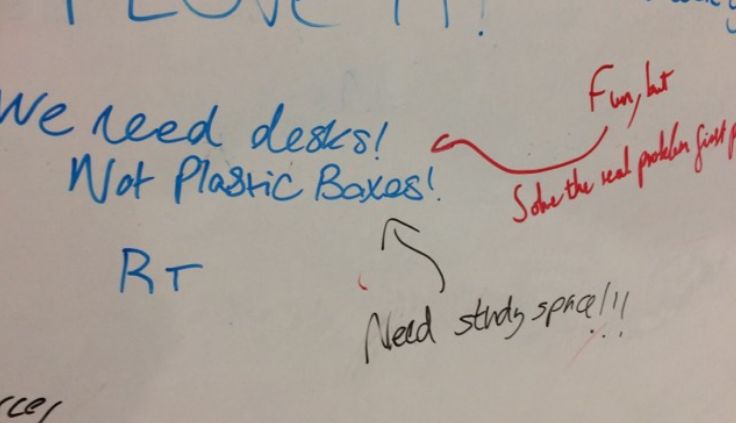 I LOVE IT!
We need desks!
Not Plastic Boxes!
RT
Fun, but
Solve the real problem first
Need study space!!!